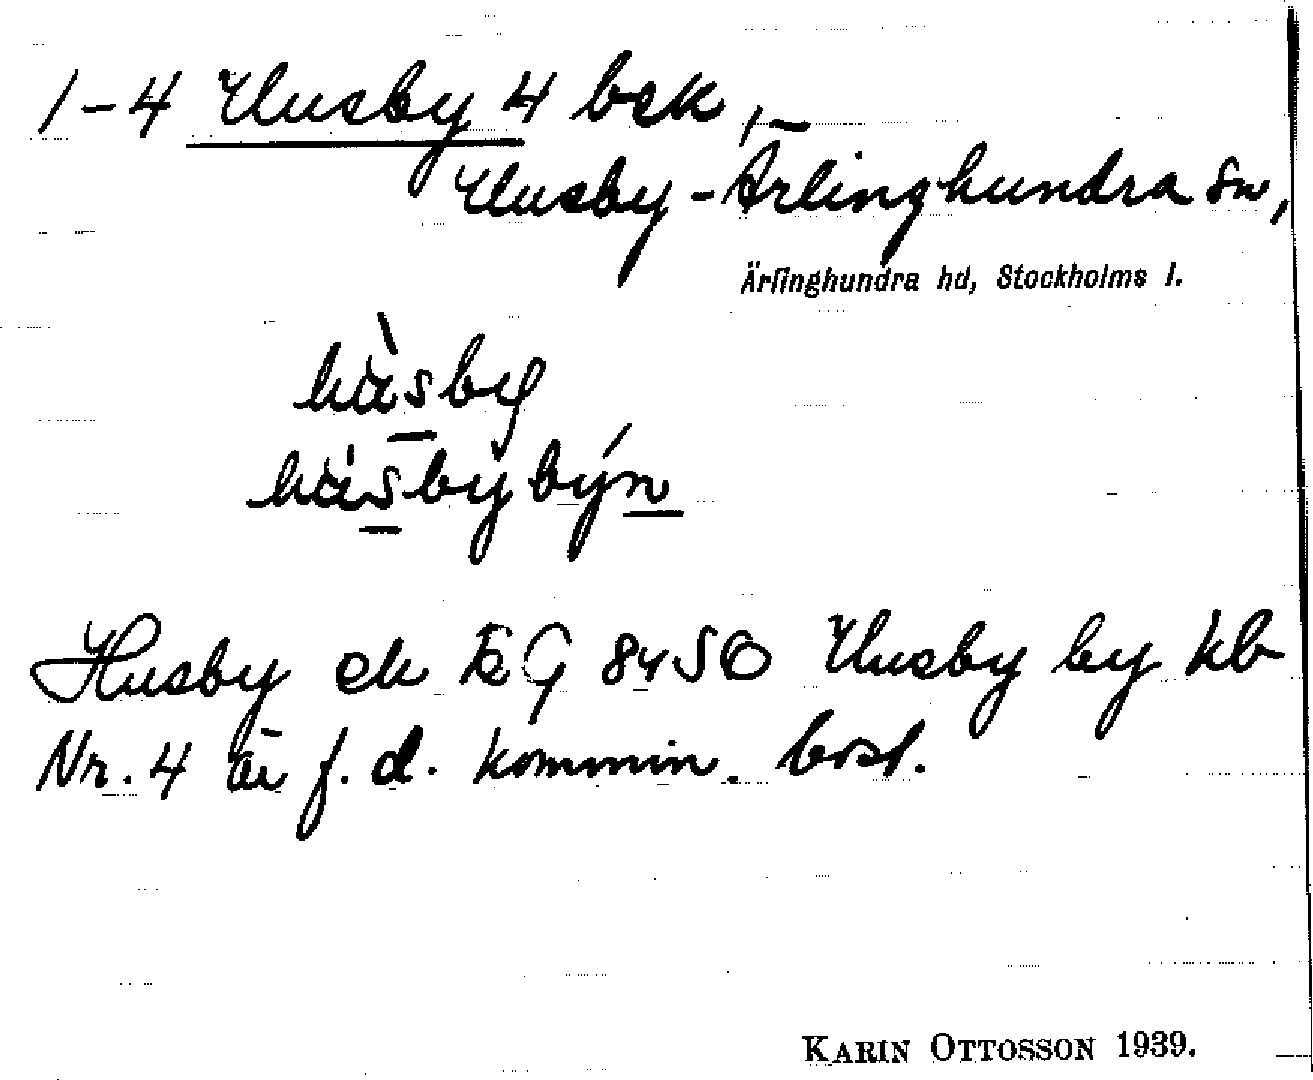 1-4 Husby 4 bsk,
Husby-Ärlinghundra sn,
Ärlinghundra hd, Stockholms l.
hùsby
husbybýn
Husby ek EG 8450 Husby by kb
Nr. 4 är f. d. kommin. bost.
KARIN OTTOSSON 1939.